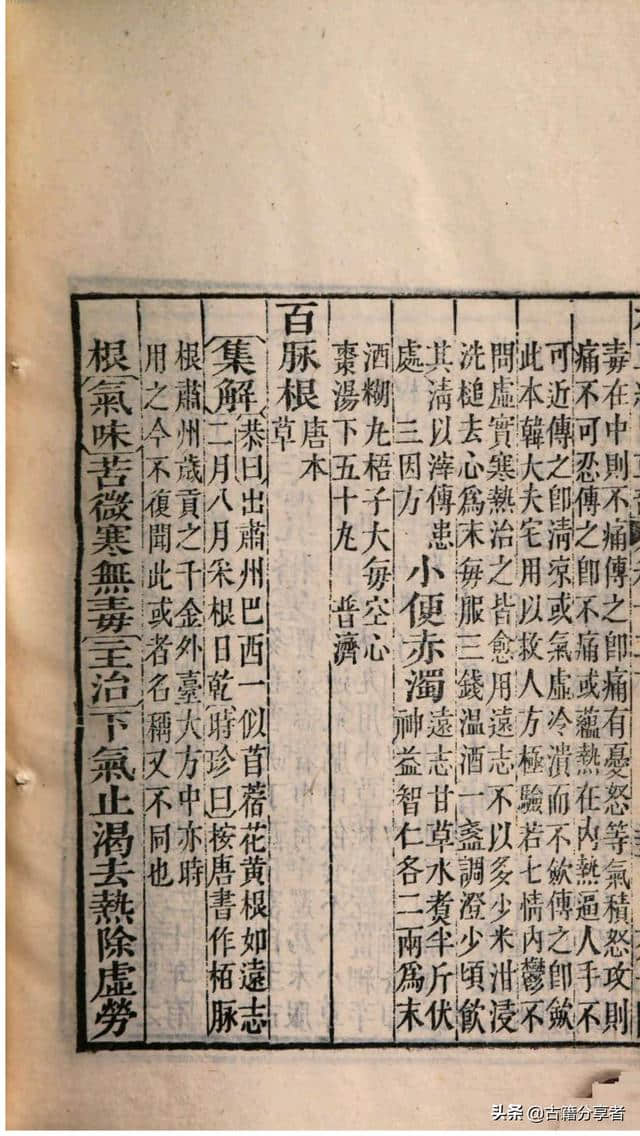 毒在中則不痛傅之卽痛有憂怒等氣積怒攻則
痛不可忍傅之卽不痛或蘊熱在內熱逼人手不
可近傅之卽清涼或氣虛冷潰而不斂傅之卽斂
此本韓大夫宅用以救人方極驗若七情內鬱不
問虛實寒熱治之皆愈用遠志不以多少米泔浸
洗槌去心爲末每服三錢温酒一盞調澄少頃飲
其清以滓傅患
處　三因方　小便赤濁
遠志甘草水煑半斤伏
神益智仁各二兩爲末
酒糊丸梧子大每空心
棗湯下五十丸　普濟
百脉根
唐本
草
集解
恭曰出肅州巴西一似苜蓿花黄根如遠志
二月八月采根日乾
時珍曰按唐書作栢脉
根肅州歲貢之千金外臺大方中亦時
用之今不復聞此或者名稱又不同也
根
氣味
苦微寒無毒
主治
下氣止渴去熱除虛勞
头条 @古籍分享者